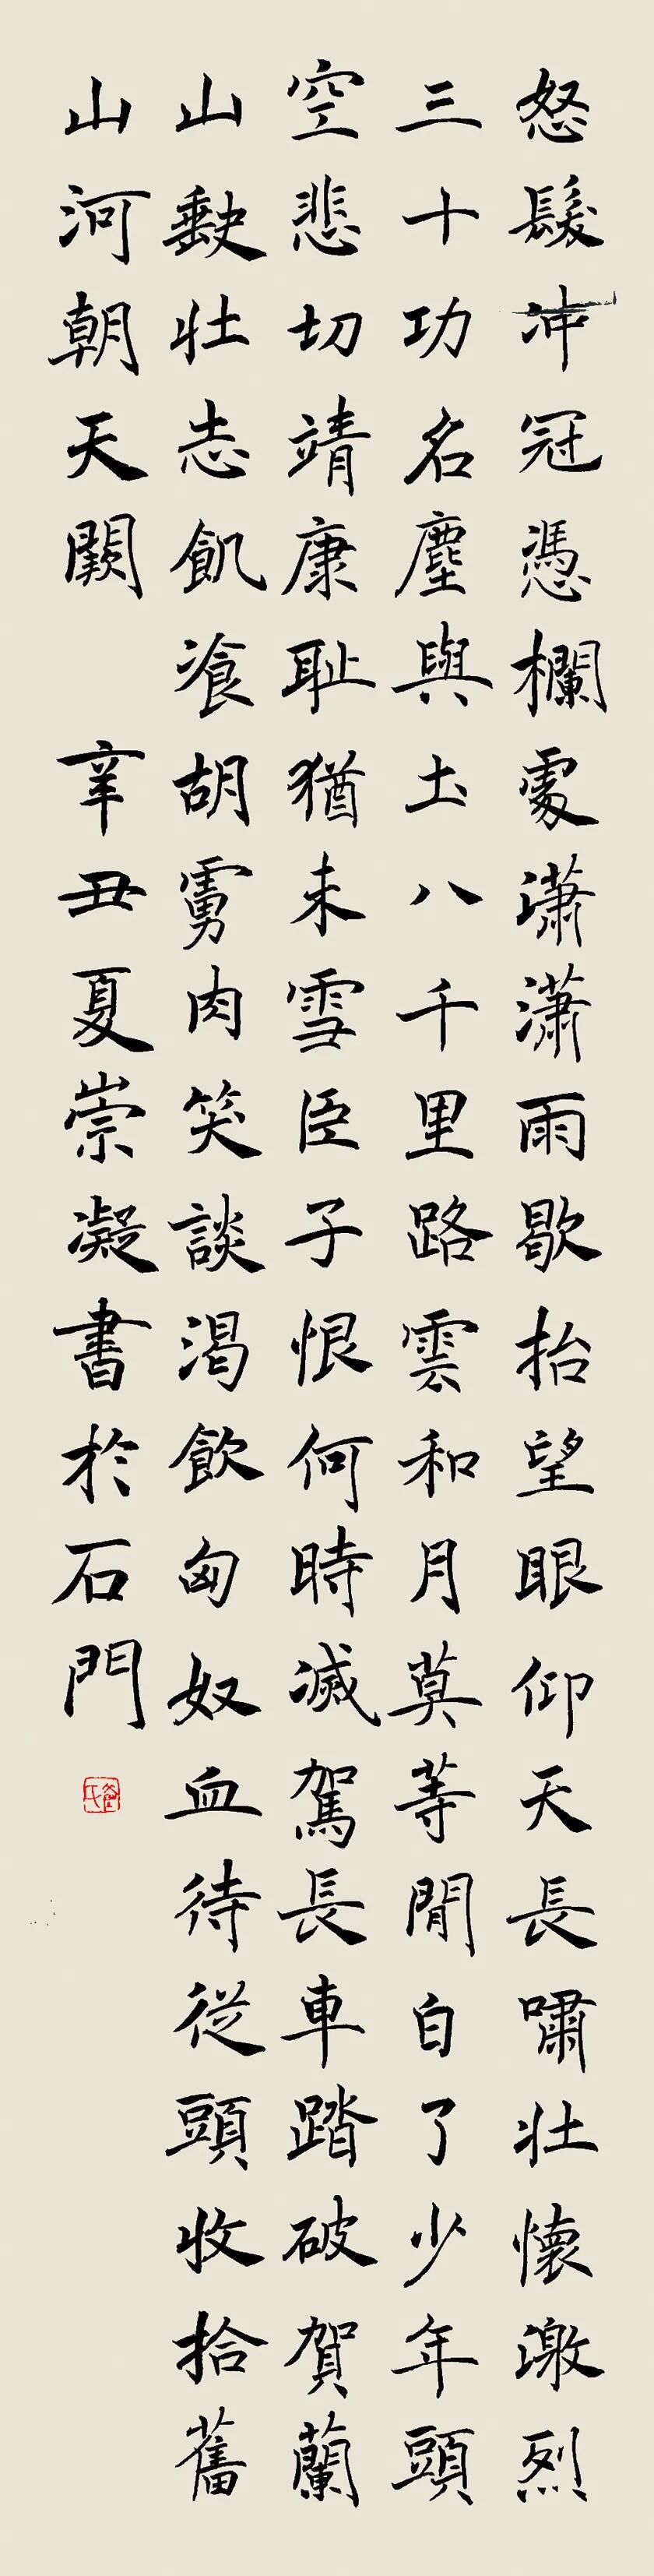 怒髮冲冠憑欄處瀟瀟雨歇抬望眼仰天長嘯壯懷激烈
三十功名塵與土八千里路雲和月莫等閒自了少年頭
空悲切靖康恥猶未雪臣子恨何時滅駕長車踏破賀蘭
山缺壯志飢飡胡虜肉笑談渴飲匈奴血待從頭收拾舊
山河朝天闕 辛丑夏崇凝書於石門